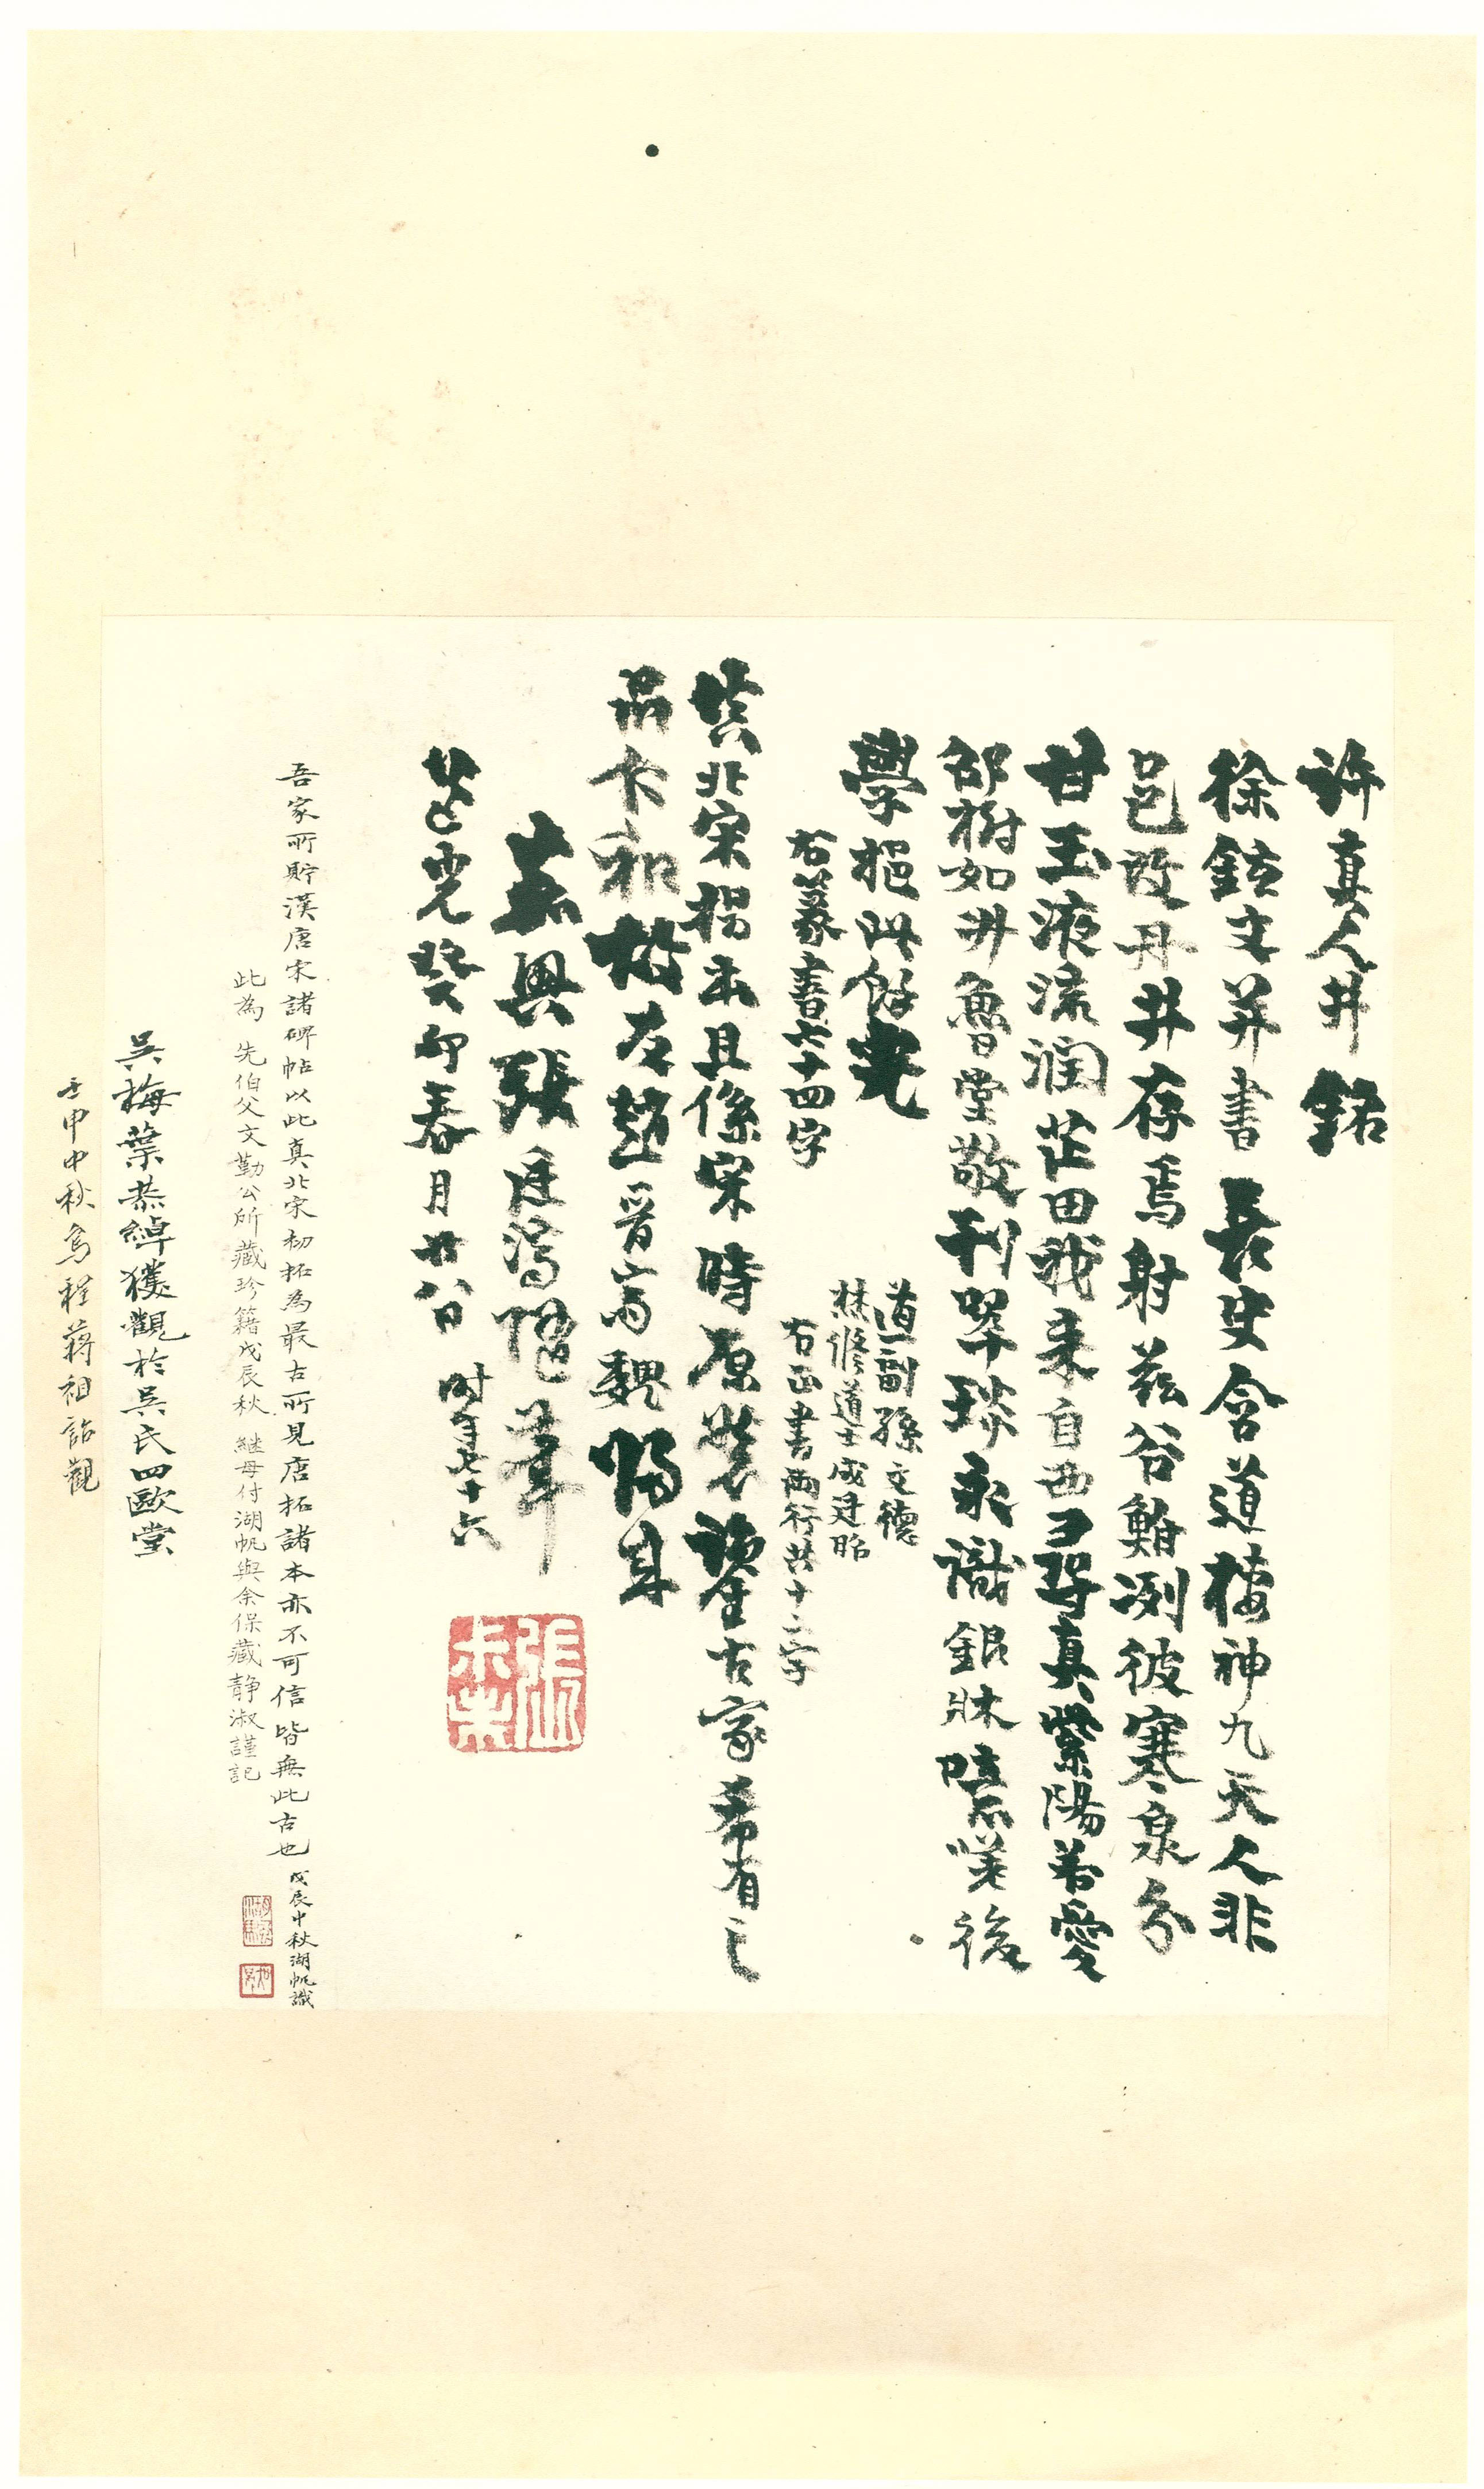 許真人井銘
徐鉉文并書 長史含道棲神九天人非
邑改丹井存焉射茲谷鮒冽彼寒泉分
甘玉液流潤芷田我來自西尋真紫陽若愛
邵樹如升魯堂敬刊翠琰永識銀牀噫嘻後
學挹此餘光
道副孫文德
林修道士成廷昭
右篆書七十四字
右正書兩行共十二字
真北宋搨本且係宋時原裝鑒古家希有之
品卡和
嘉興張廷濟
道光癸卯春月廿八日 時年七十六
張
未未
吾家所貯漢唐宋諸碑帖以此真北宋初拓為最古所見唐拓諸本亦不可信皆無此古也 戊辰中秋湖帆識
此為 先伯父文勤公所藏珍籍戊辰秋 繼母付湖帆與余保藏靜淑謹記
吳梅葉恭綽獲觀於吳氏四歐堂
壬申中秋烏程蔣祖詒觀